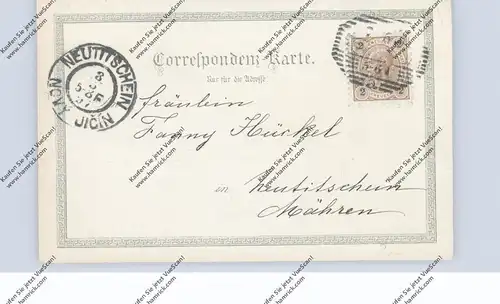 Correspondenz-Karte.
Nur für die Adresse
NEUTITSCHEIN
NOVÝ JIČÍN
Fräulein
Fanny Hückel
in Neutitschein
Mähren
Kaufen Sie jetzt VueScan!
www.hamrick.com